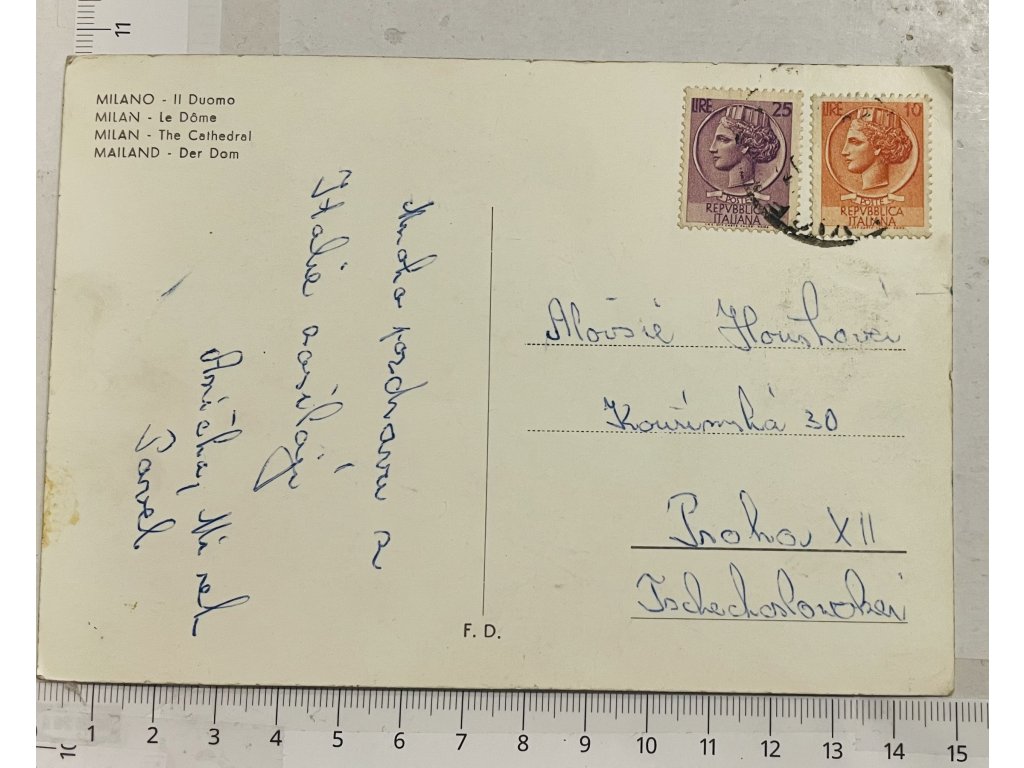 MILANO - Il Duomo
MILAN - Le Dôme
MILAN - The Cathedral
MAILAND - Der Dom
LIRE 25
POSTE
REPVBBLICA
ITALIANA
LIRE 10
POSTE
REPVBBLICA
ITALIANA
Mnoho pozdravů z
Itálie zasílají
Anička, Mirek
Pavel
Aloisie Houšková
Kouřimská 30
Praha XII
Tschechoslowakei
F. D.
11
10
1 2 3 4 5 6 7 8 9 10 11 12 13 14 15